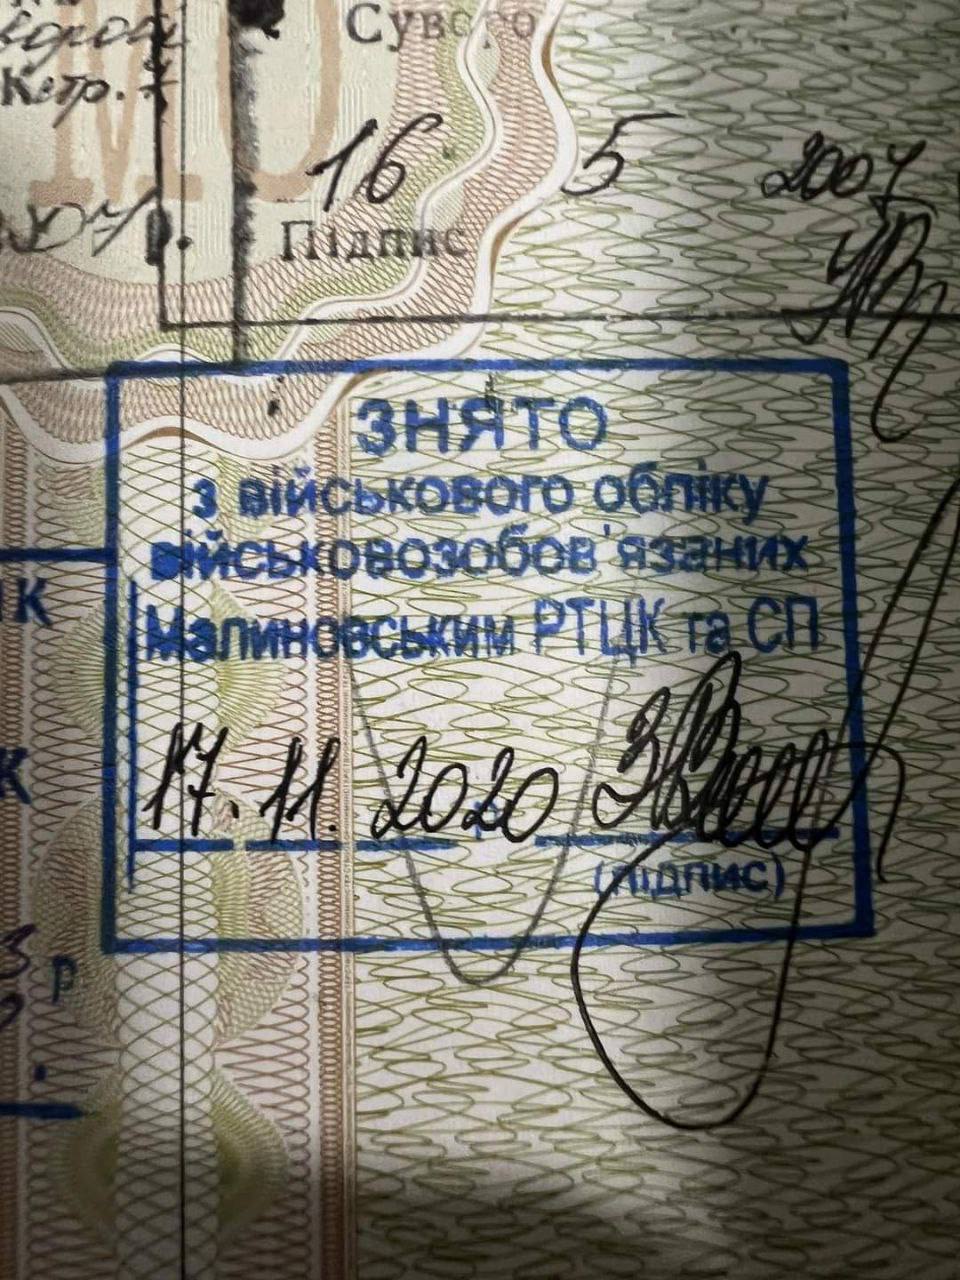 Суворо
К
16 5 2007
Підпис
ЗНЯТО
з військового обліку
військовозобов'язаних
Малиновським РТЦК та СП
17. 11. 2020 р
(підпис)
К
К
3 р